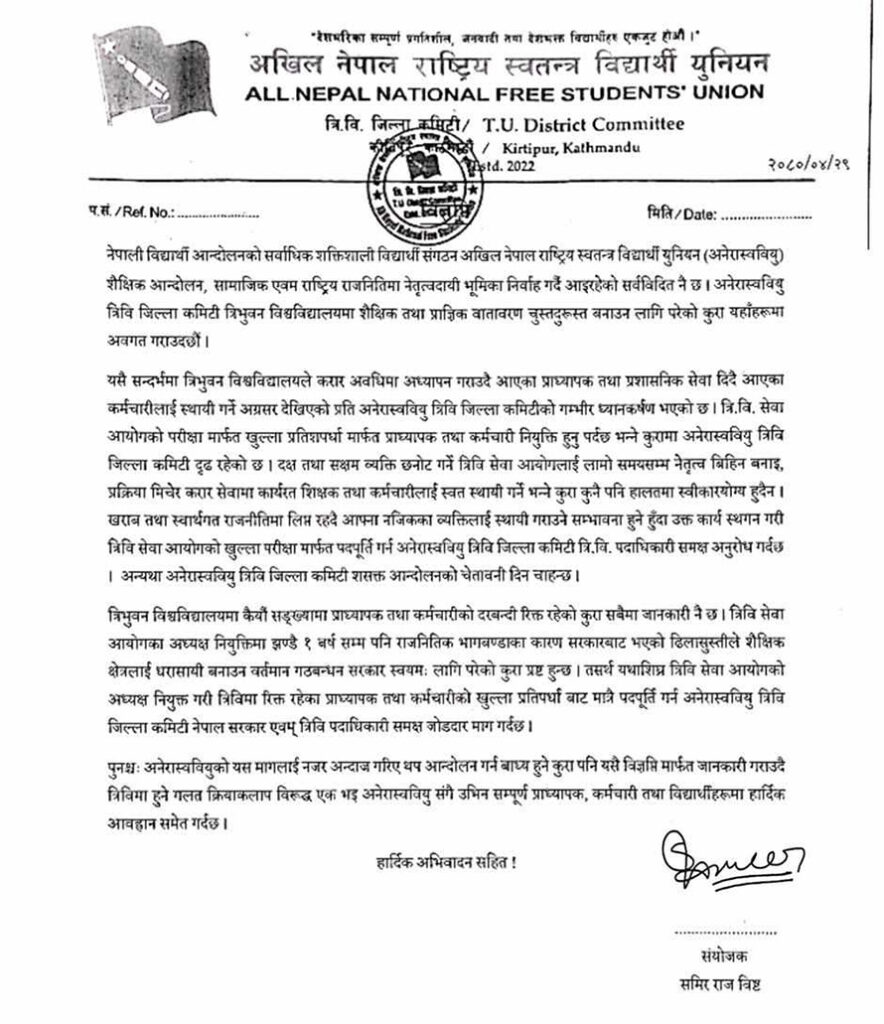 "देशभरिका सम्पूर्ण प्रगतिशील, जनवादी तथा देशभक्त विद्यार्थीहरु एकजुट होऔं ।"
अखिल नेपाल राष्ट्रिय स्वतन्त्र विद्यार्थी युनियन
ALL NEPAL NATIONAL FREE STUDENTS' UNION
त्रि.वि. जिल्ला कमिटी/ T.U. District Committee
कीर्तिपुर, काठमाडौं / Kirtipur, Kathmandu
Estd. 2022
२०८०/०४/२९
प.सं./Ref. No.: ........................
मिति/Date: ........................
नेपाली विद्यार्थी आन्दोलनको सर्वाधिक शक्तिशाली विद्यार्थी संगठन अखिल नेपाल राष्ट्रिय स्वतन्त्र विद्यार्थी युनियन (अनेरास्ववियु)
शैक्षिक आन्दोलन, सामाजिक एवम राष्ट्रिय राजनितिमा नेतृत्वदायी भूमिका निर्वाह गर्दै आइरहेको सर्वविदित नै छ । अनेरास्ववियु
त्रिवि जिल्ला कमिटी त्रिभुवन विश्वविद्यालयमा शैक्षिक तथा प्राज्ञिक वातावरण चुस्तदुरूस्त बनाउन लागि परेको कुरा यहाँहरूमा
अवगत गराउदछौं ।
यसै सन्दर्भमा त्रिभुवन विश्वविद्यालयले करार अवधिमा अध्यापन गराउदै आएका प्राध्यापक तथा प्रशासनिक सेवा दिदै आएका
कर्मचारीलाई स्थायी गर्ने अग्रसर देखिएको प्रति अनेरास्ववियु त्रिवि जिल्ला कमिटीको गम्भीर ध्यानकर्षण भएको छ । त्रि.वि. सेवा
आयोगको परीक्षा मार्फत खुल्ला प्रतिशपर्धा मार्फत प्राध्यापक तथा कर्मचारी नियुक्ति हुनु पर्दछ भन्ने कुरामा अनेरास्ववियु त्रिवि
जिल्ला कमिटी दृढ रहेको छ । दक्ष तथा सक्षम व्यक्ति छनोट गर्ने त्रिवि सेवा आयोगलाई लामो समयसम्भ नेतृत्व बिहिन बनाइ,
प्रक्रिया मिचेर करार सेवामा कार्यरत शिक्षक तथा कर्मचारीलाई स्वत स्थायी गर्ने भन्ने कुरा कुनै पनि हालतमा स्वीकारयोग्य हुदैन ।
खराब तथा स्वार्थगत राजनीतिमा लिप्त रहदै आफ्ना नजिकका व्यक्तिलाई स्थायी गराउने सम्भावना हुने हुँदा उक्त कार्य स्थगन गरी
त्रिवि सेवा आयोगको खुल्ला परीक्षा मार्फत पदपूर्ति गर्न अनेरास्ववियु त्रिवि जिल्ला कमिटी त्रि.वि. पदाधिकारी समक्ष अनुरोध गर्दछ
। अन्यथा अनेरास्ववियु त्रिवि जिल्ला कमिटी शसक्त आन्दोलनको चेतावनी दिन चाहन्छ ।
त्रिभुवन विश्वविद्यालयमा कैयौं सङ्ख्यामा प्राध्यापक तथा कर्मचारीको दरबन्दी रिक्त रहेको कुरा सबैमा जानकारी नै छ । त्रिवि सेवा
आयोगका अध्यक्ष नियुक्तिमा झण्डै १ बर्ष सम्म पनि राजनितिक भागबण्डाका कारण सरकारबाट भएको ढिलासुस्तीले शैक्षिक
क्षेत्रलाई धरासायी बनाउन वर्तमान गठबन्धन सरकार स्वयमः लागि परेको कुरा प्रष्ट हुन्छ । तसर्थ यथाशिघ्र त्रिवि सेवा आयोगको
अध्यक्ष नियुक्त गरी त्रिविमा रिक्त रहेका प्राध्यापक तथा कर्मचारीको खुल्ला प्रतिपर्धा बाट मात्रै पदपूर्ति गर्न अनेरास्ववियु त्रिवि
जिल्ला कमिटी नेपाल सरकार एवम् त्रिवि पदाधिकारी समक्ष जोडदार माग गर्दछ ।
पुनश्चः अनेरास्ववियुको यस मागलाई नजर अन्दाज गरिए थप आन्दोलन गर्न बाध्य हुने कुरा पनि यसै विज्ञप्ति मार्फत जानकारी गराउदै
त्रिविमा हुने गलत क्रियाकलाप विरूद्ध एक भइ अनेरास्ववियु संगै उभिन सम्पूर्ण प्राध्यापक, कर्मचारी तथा विद्यार्थीहरूमा हार्दिक
आवह्वान समेत गर्दछ ।
हार्दिक अभिवादन सहित !
........................
संयोजक
समिर राज विष्ट